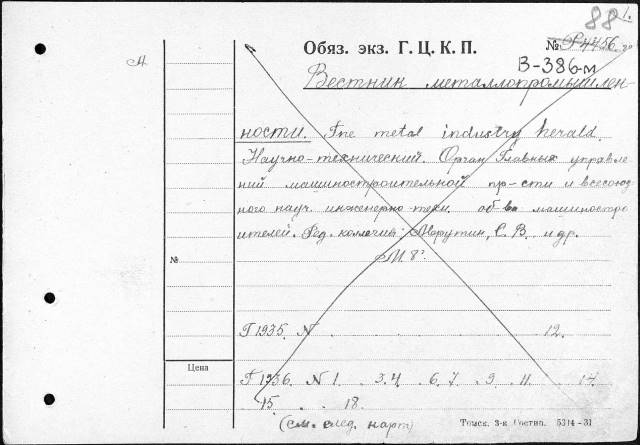 88 1.
Обяз. экз. Г. Ц. К. П. № Р4456
В-386-м
Вестник металлопромышлен-
ности. The metal industry herald.
Научно-технический. Орган Главных управле
ний машиностроительной пр-сти и всесоюз
ного науч. инженерно-техн. об-ва машиностро
ителей. Ред. коллегия: Марутин, С. В. и др.
М 8°.
№
Г 1935. N . . . . . . . . . . . 12.
Цена
Г 1936. N 1. . 3.4. . 6.7. . 9. . 11. . . 14.
15. . . 18.
(см. след. карт)
Томск. 3-я Гостип. 5314-31